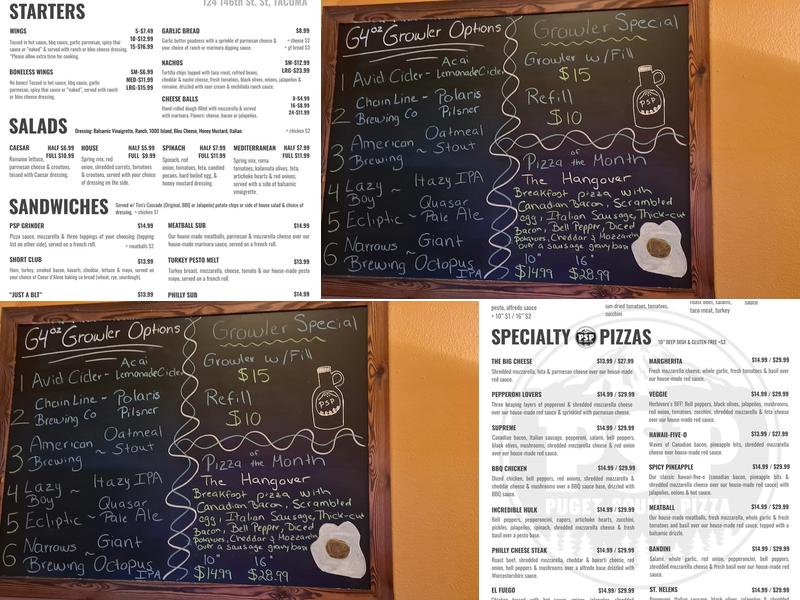 124 146th St. St, TACOMA
STARTERS
WINGS 5-$7.49
10-$12.99
15-$16.99
Tossed in hot sauce, bbq sauce, garlic parmesan, spicy thai
sauce or "naked" & served with ranch or bleu cheese dressing.
*Please allow extra time for cooking.
BONELESS WINGS SM-$6.99
MED-$11.99
LRG-$15.99
No bones! Tossed in hot sauce, bbq sauce, garlic
parmesan, spicy thai sauce or "naked", served with ranch
or bleu cheese dressing.
GARLIC BREAD $8.99
Garlic butter goodness with a sprinkle of parmesan cheese &
your choice of ranch or marinara dipping sauce.
+ cheese $2
+ gf bread $3
NACHOS SM-$12.99
LRG-$23.99
Tortilla chips topped with taco meat, refried beans,
cheddar & nacho cheese, fresh tomatoes, black olives, onions, jalapeños &
romaine, drizzled with sour cream & enchilada ranch sauce.
CHEESE BALLS 8-$4.99
16-$8.99
24-$11.99
Hand-rolled dough filled with mozzarella & served
with marinara. Flavors: cheese, bacon or jalapeños.
SALADS Dressing: Balsamic Vinaigrette, Ranch, 1000 Island, Bleu Cheese, Honey Mustard, Italian. + chicken $2
CAESAR HALF $6.99
FULL $10.99
Romaine lettuce,
parmesan cheese & croutons,
tossed with Caesar dressing.
HOUSE HALF $5.99
FULL $9.99
Spring mix, red
onion, shredded carrots, tomatoes
& croutons, served with your choice
of dressing on the side.
SPINACH HALF $7.99
FULL $11.99
Spinach, red
onion, tomatoes, feta, candied
pecans, hard boiled egg, &
honey mustard dressing.
MEDITERRANEAN HALF $7.99
FULL $11.99
Spring mix, roma
tomatoes, kalamata olives, feta,
artichoke hearts & red onions,
served with a side of balsamic
vinaigrette.
SANDWICHES Served w/ Tim's Cascade (Original, BBQ or Jalapeño) potato chips or side of house salad & choice of
dressing. + chicken $1
PSP GRINDER $14.99
Pizza sauce, mozzarella & three toppings of your choosing (topping
list on other side), served on a french roll.
SHORT CLUB $13.99
Ham, turkey, smoked bacon, havarti, cheddar, lettuce & mayo, served on
your choice of Coeur d'Alene baking co bread (wheat, rye, sourdough).
"JUST A BLT" $13.99
MEATBALL SUB $14.99
Our house-made meatballs, parmesan & mozzarella cheese over our
house-made marinara sauce, served on a french roll.
+ meatballs $2
TURKEY PESTO MELT $13.99
Turkey breast, mozzarella, cheese, tomato & our house-made pesto
mayo, served on a french roll.
PHILLY SUB $14.99
64oz Growler Options
1 Avid Cider - Acai LemonadeCider
2 Chain Line - Polaris
Brewing Co Pilsner
3 American Oatmeal
Brewing ~ Stout
4 Lazy ~ Hazy IPA
Boy
5 Ecliptic ~ Quasar Pale Ale
6 Narrows ~ Giant
Brewing Octopus
IPA
Growler Special
Growler w/Fill
$15
Refill
$10
PSP
Pizza of the Month
The Hangover
Breakfast pizza with
Canadian Bacon, Scrambled
egg, Italian Sausage, Thick-cut
Bacon, Bell Pepper, Diced
Potatoes, Cheddar & Mozzarella
over a sausage gravy base
10" 16"
$14.99 $28.99
64oz Growler Options
1 Avid Cider - Acai LemonadeCider
2 Chain Line - Polaris
Brewing Co Pilsner
3 American Oatmeal
Brewing ~ Stout
4 Lazy ~ Hazy IPA
Boy
5 Ecliptic ~ Quasar Pale Ale
6 Narrows ~ Giant
Brewing Octopus
IPA
Growler Special
Growler w/Fill
$15
Refill
$10
PSP
Pizza of the Month
The Hangover
Breakfast pizza with
Canadian Bacon, Scrambled
egg, Italian Sausage, Thick-cut
Bacon, Bell Pepper, Diced
Potatoes, Cheddar & Mozzarella
over a sausage gravy base
10" 16"
$14.99 $28.99
pesto, alfredo sauce
+ 10" $1 / 16" $2
sun-dried tomatoes, tomatoes,
zucchini
roast beef, salami,
taco meat, turkey
sauce
SPECIALTY PSP PIZZAS 10" DEEP DISH & GLUTEN-FREE +$3
THE BIG CHEESE $13.99 / $27.99
Shredded mozzarella, feta & parmesan cheese over our house-made
red sauce.
PEPPERONI LOVERS $14.99 / $29.99
Three heaping layers of pepperoni & shredded mozzarella cheese
over our house-made red sauce & sprinkled with parmesan cheese.
SUPREME $14.99 / $29.99
Canadian bacon, Italian sausage, pepperoni, salami, bell peppers,
black olives, mushrooms, shredded mozzarella cheese & red onion
over our house-made red sauce.
BBQ CHICKEN $14.99 / $29.99
Diced chicken, bell peppers, red onions, shredded mozzarella &
cheddar cheese & mushrooms over a BBQ sauce base, drizzled with
BBQ sauce.
INCREDIBLE HULK $14.99 / $29.99
Bell peppers, pepperoncini, capers, artichoke hearts, zucchini,
pickles, jalapeños, spinach, shredded mozzarella cheese & fresh
basil over a pesto base.
PHILLY CHEESE STEAK $14.99 / $29.99
Roast beef, shredded mozzarella, cheddar & havarti cheese, red
onion, bell peppers & mushrooms over a alfredo base drizzled with
Worcestershire sauce.
EL FUEGO $14.99 / $29.99
MARGHERITA $14.99 / $29.99
Fresh mozzarella cheese, whole garlic, fresh tomatoes & basil over
our house-made red sauce.
VEGGIE $14.99 / $29.99
Herbivore's BFF! Bell peppers, black olives, jalapeños, mushrooms,
red onion, tomatoes, zucchini, shredded mozzarella & feta cheese
over our house-made red sauce.
HAWAII-FIVE-O $13.99 / $27.99
Waves of Canadian bacon, pineapple bits, shredded mozzarella
cheese over our house-made red sauce.
SPICY PINEAPPLE $14.99 / $29.99
Our classic hawaii-five-o (canadian bacon, pineapple bits &
shredded mozzarella cheese over our house-made red sauce) with
jalapeños, onions & hot sauce.
MEATBALL $14.99 / $29.99
Our house-made meatballs, fresh mozzarella, whole garlic & fresh
tomatoes and basil over our house-made red sauce, topped with a
balsamic drizzle.
BANDINI $14.99 / $29.99
Salami, whole garlic, red onion, pepperoncini, bell peppers,
shredded mozzarella cheese & fresh basil over our house-made red
sauce.
ST. HELENS $14.99 / $29.99
PUGET SOUND PIZZA